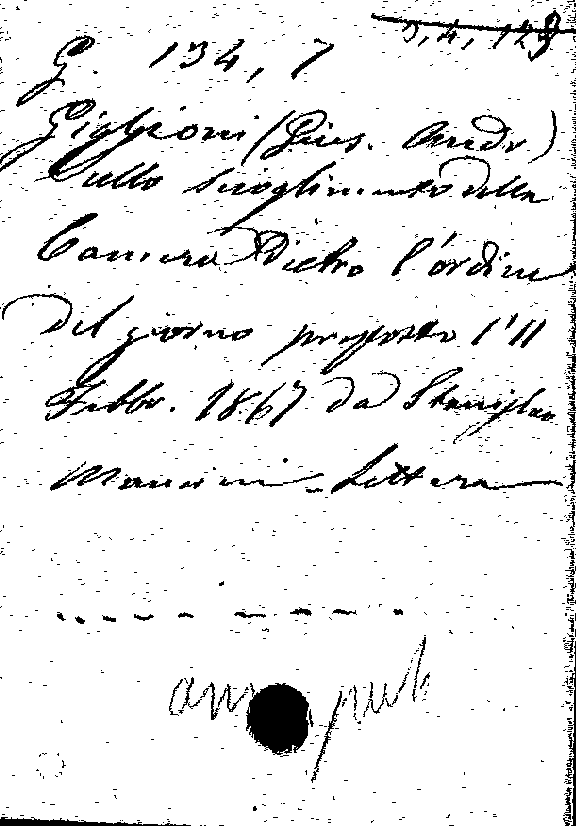 3, 4, 123
G. 134, 7
Giglioni (Gius. Andr.)
Sullo scioglimento della
Camera Dietro l'ordine
del giorno proposto l'11
Febbr. 1867 da Stanislao
Mancini - Lettera